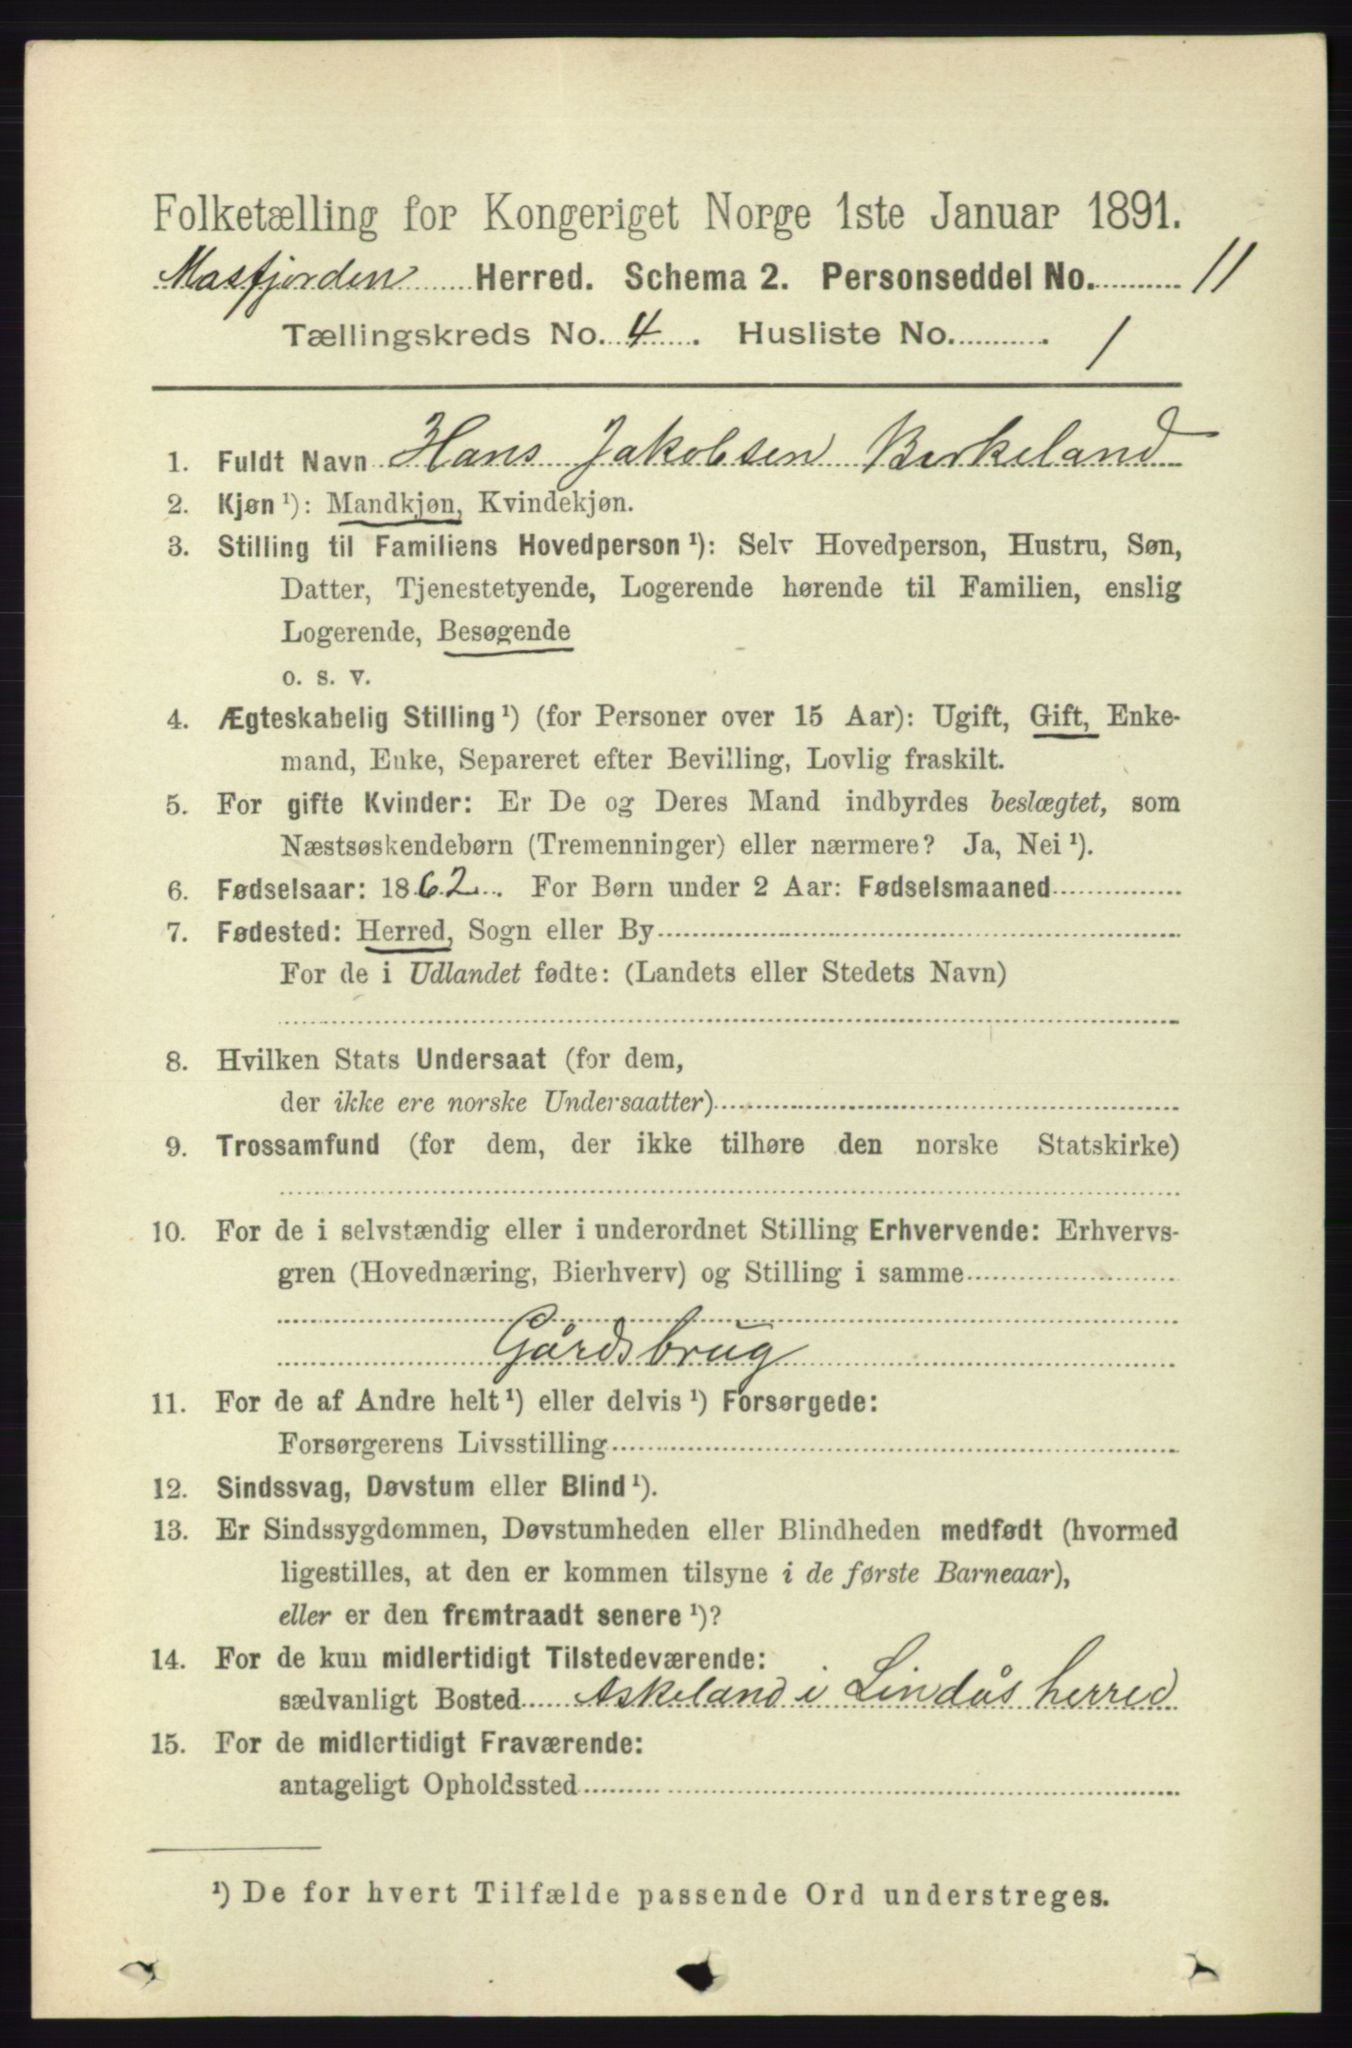 Folketælling for Kongeriget Norge 1ste Januar 1891.
Masfjorden Herred. Schema 2. Personseddel No. 11
Tællingskreds No. 4. Husliste No. 1
1. Fuldt Navn Hans Jakobsen Birkeland
2. Kjøn¹): Mandkjøn, Kvindekjøn.
3. Stilling til Familiens Hovedperson¹): Selv Hovedperson, Hustru, Søn,
Datter, Tjenestetyende, Logerende hørende til Familien, enslig
Logerende, Besøgende
o. s. v.
4. Ægteskabelig Stilling¹) (for Personer over 15 Aar): Ugift, Gift, Enke-
mand, Enke, Separeret efter Bevilling, Lovlig fraskilt.
5. For gifte Kvinder: Er De og Deres Mand indbyrdes beslægtet, som
Næstsøskendebørn (Tremenninger) eller nærmere? Ja, Nei¹).
6. Fødselsaar: 1862. For Børn under 2 Aar: Fødselsmaaned
7. Fødested: Herred, Sogn eller By
For de i Udlandet fødte: (Landets eller Stedets Navn)
8. Hvilken Stats Undersaat (for dem,
der ikke ere norske Undersaatter)
9. Trossamfund (for dem, der ikke tilhøre den norske Statskirke)
10. For de i selvstændig eller i underordnet Stilling Erhvervende: Erhvervs-
gren (Hovednæring, Bierhverv) og Stilling i samme
Gårdsbrug
11. For de af Andre helt¹) eller delvis¹) Forsørgede:
Forsørgerens Livsstilling
12. Sindssvag, Døvstum eller Blind¹).
13. Er Sindssygdommen, Døvstumheden eller Blindheden medfødt (hvormed
ligestilles, at den er kommen tilsyne i de første Barneaar),
eller er den fremtraadt senere¹)?
14. For de kun midlertidigt Tilstedeværende:
sædvanligt Bosted Askeland i Lindås herred
15. For de midlertidigt Fraværende:
antageligt Opholdssted
¹) De for hvert Tilfælde passende Ord understreges.